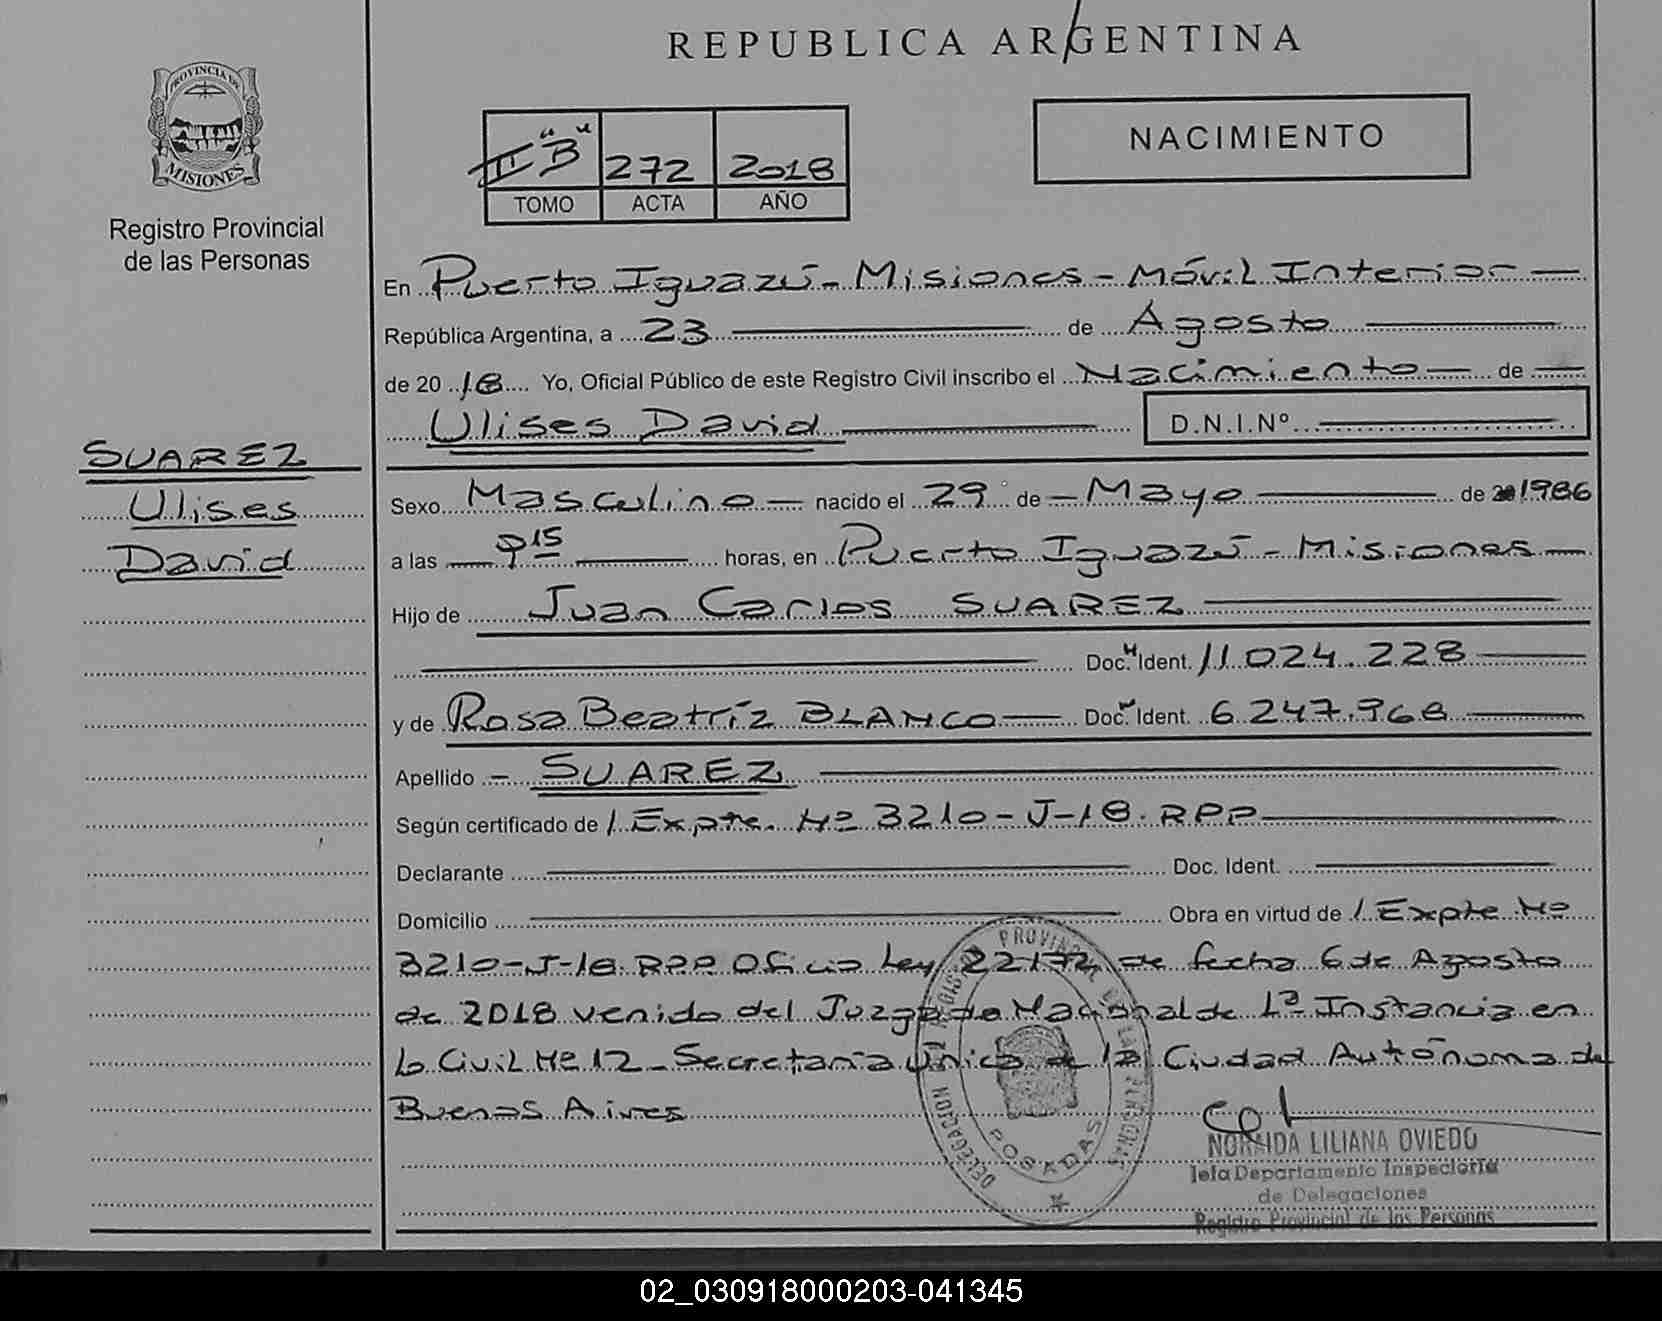 REPUBLICA ARGENTINA
PROVINCIA DE
MISIONES
Registro Provincial
de las Personas
II "B" 272 2018
TOMO ACTA AÑO
NACIMIENTO
En Puerto Iguazú - Misiones - Móvil Interior
República Argentina, a 23 de Agosto
de 20 18 Yo, Oficial Público de este Registro Civil inscribo el Nacimiento de
Ulises David D.N.I.Nº
SUAREZ
Ulises
David
Sexo Masculino nacido el 29 de Mayo de 1986
a las 9 15 horas, en Puerto Iguazú - Misiones
Hijo de Juan Carlos SUAREZ
Doc. Ident. 11.024.228
y de Rosa Beatríz BLANCO Doc. Ident. 6.247.968
Apellido SUAREZ
Según certificado de / Expte. Nº 3210-J-18. RPP
Declarante Doc. Ident.
Domicilio Obra en virtud de / Expte Nº
3210-J-18. RPP Oficio Ley 22172 de fecha 6 de Agosto
de 2018 venido del Juzgado Nacional de 1ª Instancia en
lo Civil Nº 12 - Secretaría Única de la Ciudad Autónoma de
Buenos Aires
POSADAS
NORAIDA LILIANA OVIEDO
Jefa Departamento Inspectoría
de Delegaciones
Registro Provincial de las Personas
02_030918000203-041345